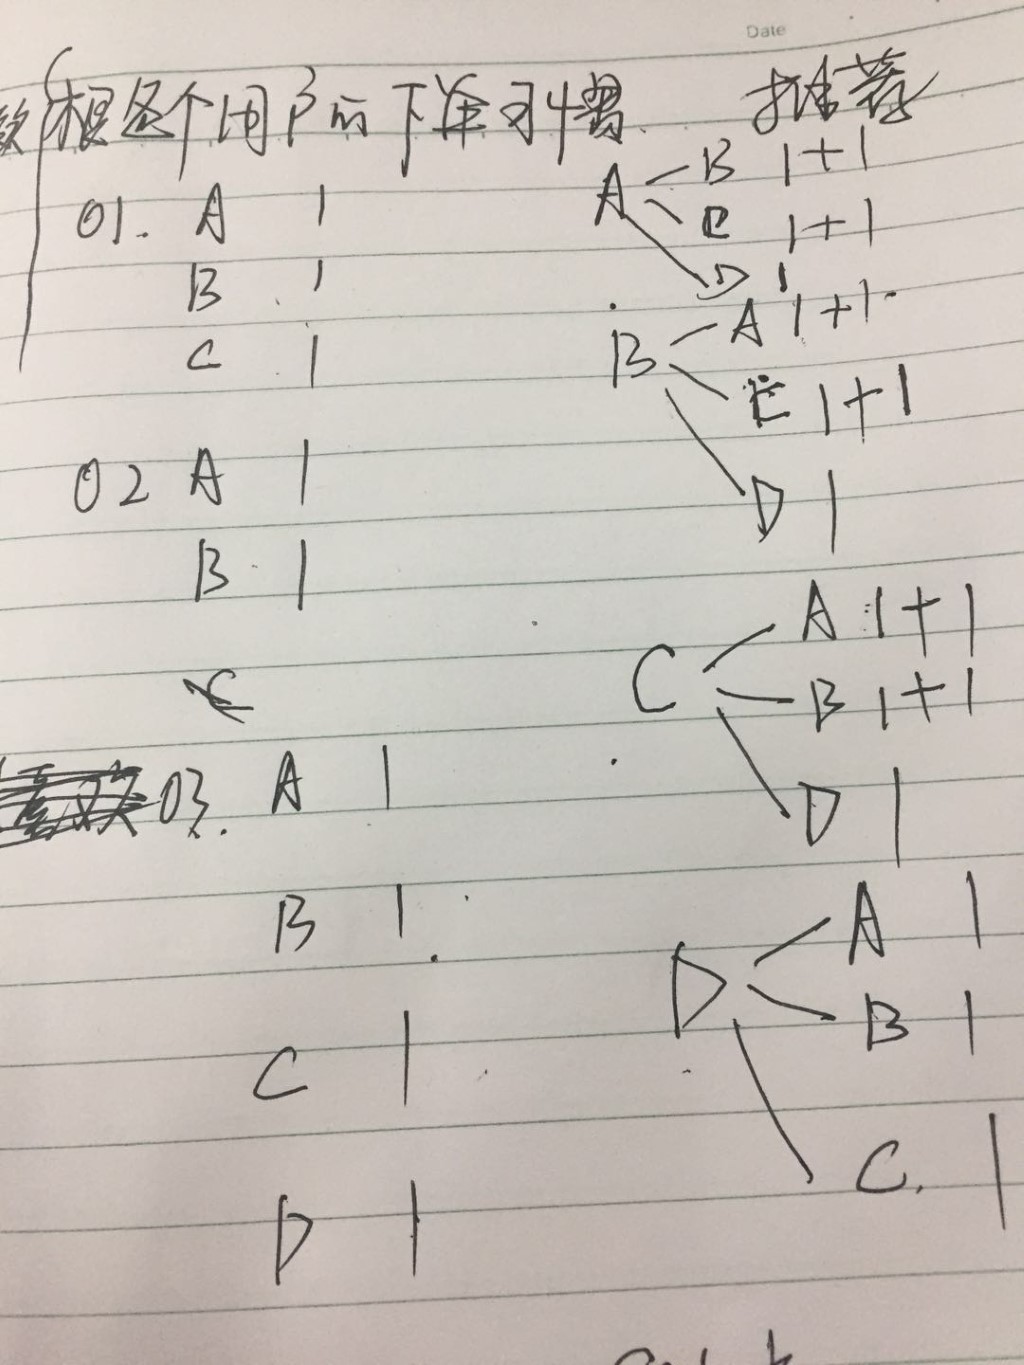 Date
根各个用户的下单习惯 推荐
01. A 1
B 1
C 1
02 A 1
B 1
C
03. A 1
B 1
C 1
D 1
A
B 1+1
C 1+1
D 1
B
A 1+1
C 1+1
D 1
C
A 1+1
B 1+1
D 1
D
A 1
B 1
C. 1